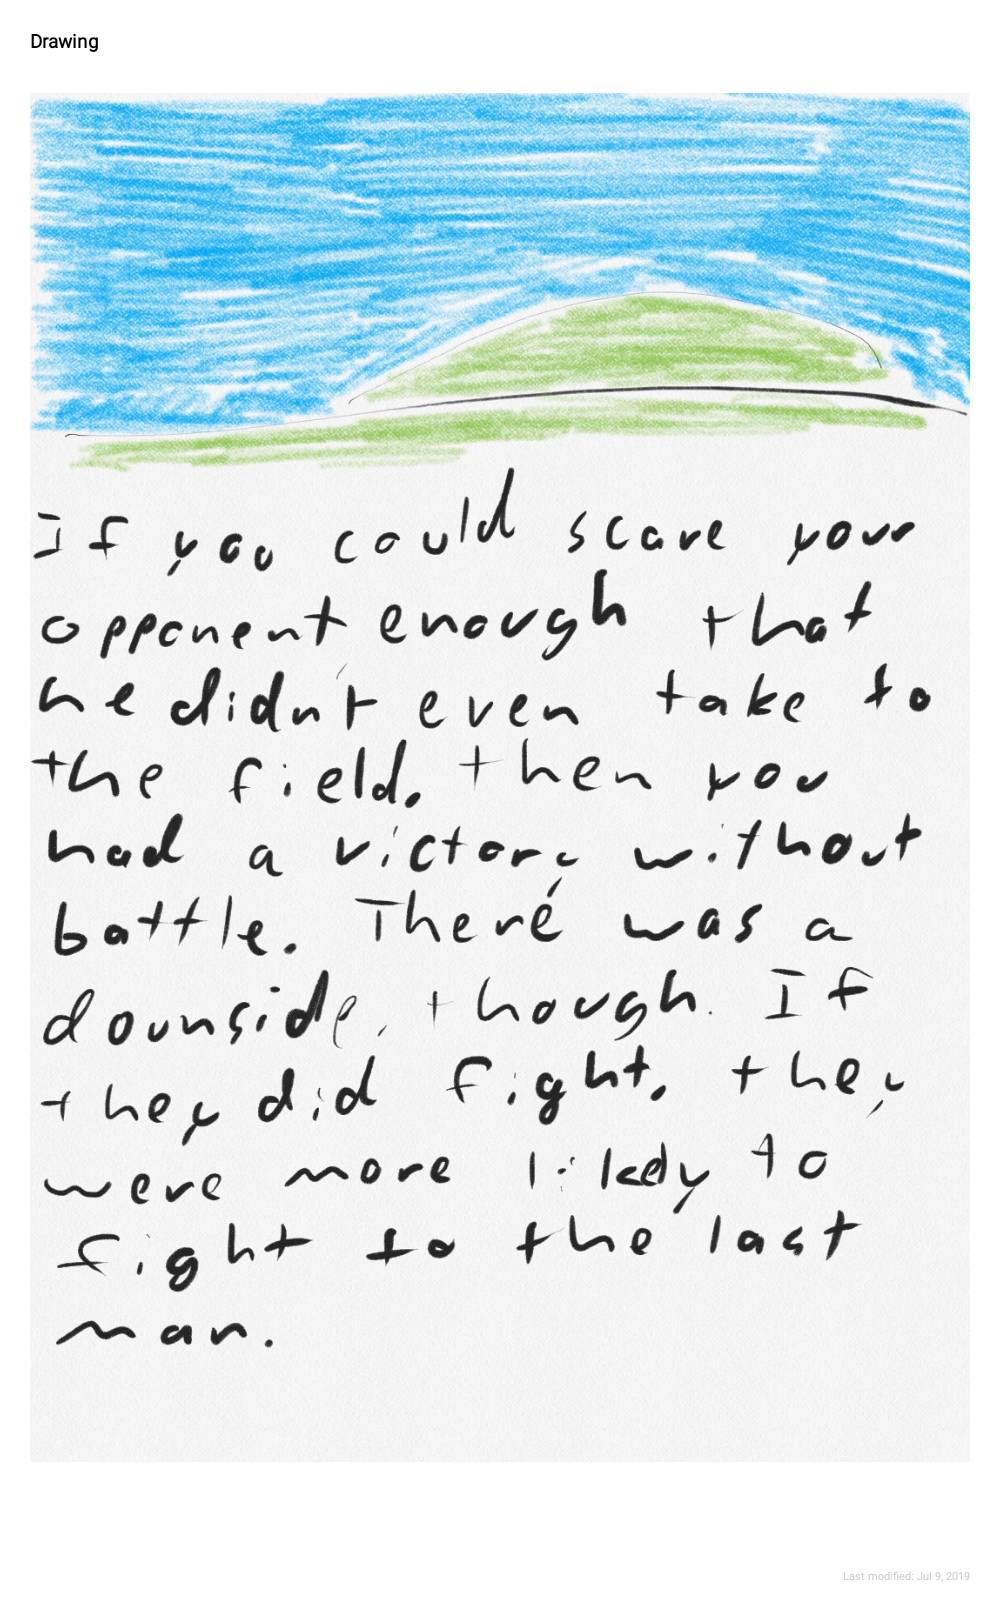 Drawing
If you could scare your
opponent enough that
he didn't even take to
the field, then you
had a victory without
battle. There was a
downside, though. If
they did fight, they
were more likely to
fight to the last
man.
Last modified: Jul 9, 2019